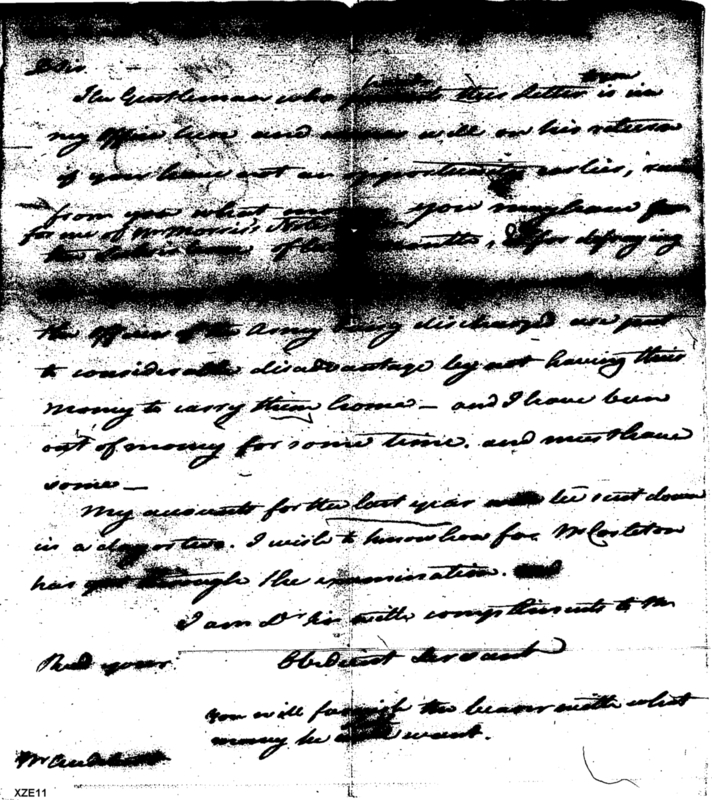 D Sir
The Gentleman who this letter is in
my Office here and will on his return
if you have not an opportunity earlier,
from you what you may have
for me of Mr Morris's Notes
the for defraying
the officers of the Army being discharged are put
to considerable disadvantage by not having their
money to carry them home — and I have been
out of money for some time. and must have
some —
My accounts for the last year be sent down
in a day or two. I wish to know how far Mr Carleton
has through the examination.
I am Dr Sir with compliments to Mr
Read your Obedient Servant
you will furnish the bearer with what
money he want.
Mr
XZE11